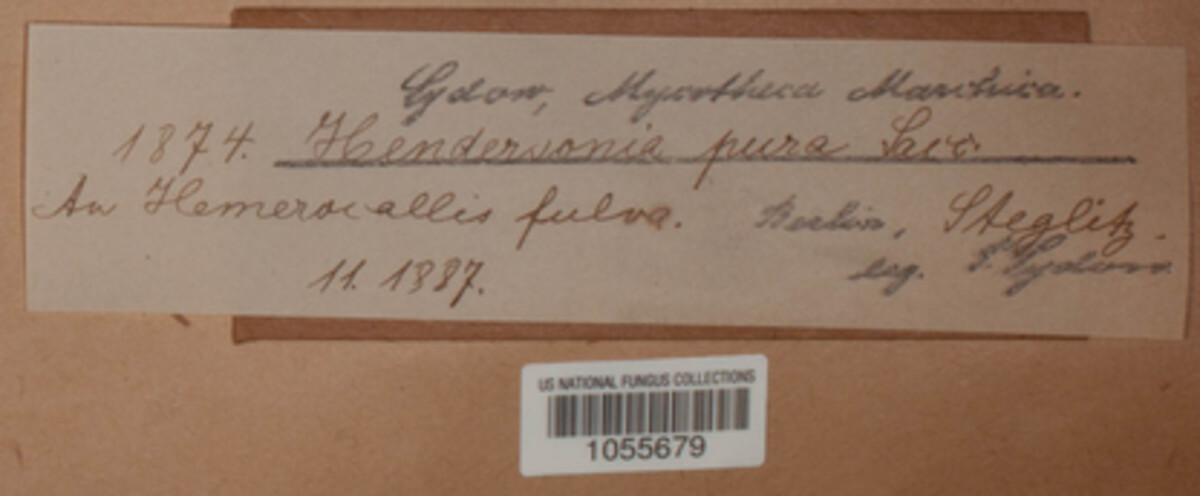 Sydow, Mycotheca Marchica.
1874. Hendersonia pura Sacc.
An Hemerocallis fulva. Berlin, Steglitz.
11. 1887. leg. P. Sydow.
US NATIONAL FUNGUS COLLECTIONS
1055679